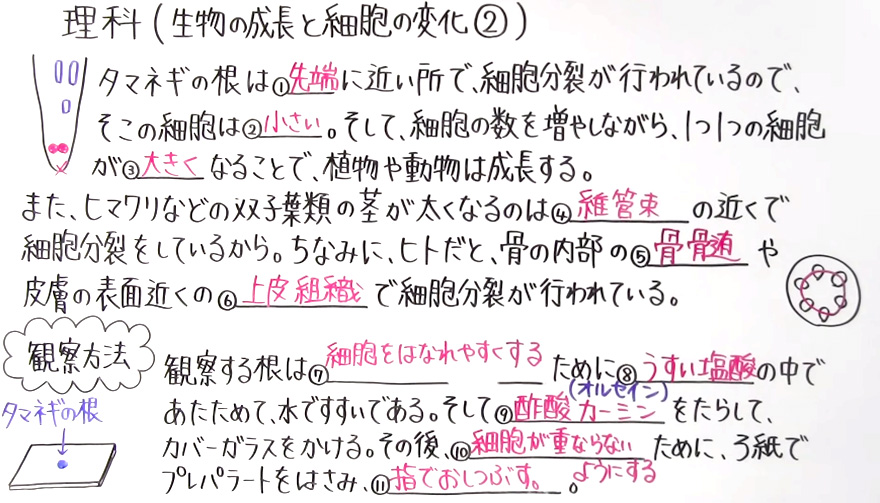 理科(生物の成長と細胞の変化②)
タマネギの根は①先端に近い所で、細胞分裂が行われているので、
そこの細胞は②小さい。そして、細胞の数を増やしながら、1つ1つの細胞
が③大きくなることで、植物や動物は成長する。
また、ヒマワリなどの双子葉類の茎が太くなるのは④維管束の近くで
細胞分裂をしているから。ちなみに、ヒトだと、骨の内部の⑤骨髄や
皮膚の表面近くの⑥上皮組織で細胞分裂が行われている。
観察方法
観察する根は⑦細胞をはなれやすくするために⑧うすい塩酸の中で
(オルセイン)
あたためて、水ですすいである。そして⑨酢酸カーミンをたらして、
カバーガラスをかける。その後、⑩細胞が重ならないために、ろ紙で
ように���る
プレパラートをはさみ、⑪指でおしつぶす。。
タマネギの根